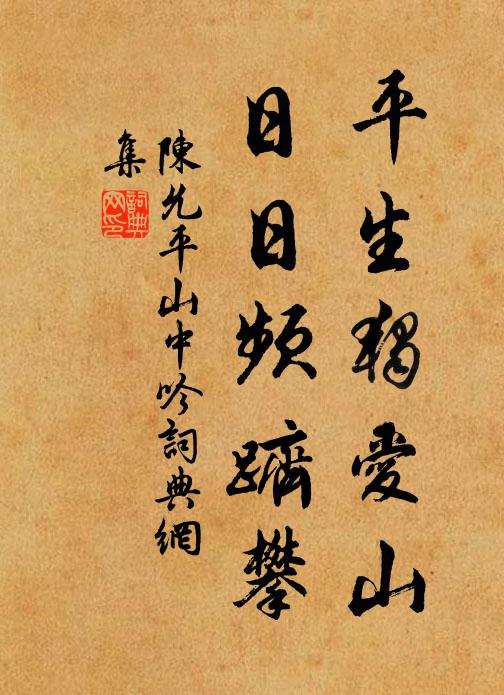 平生獨愛山
日日頻躋攀
陳允平山中吟詞典網
集
詞典
网印